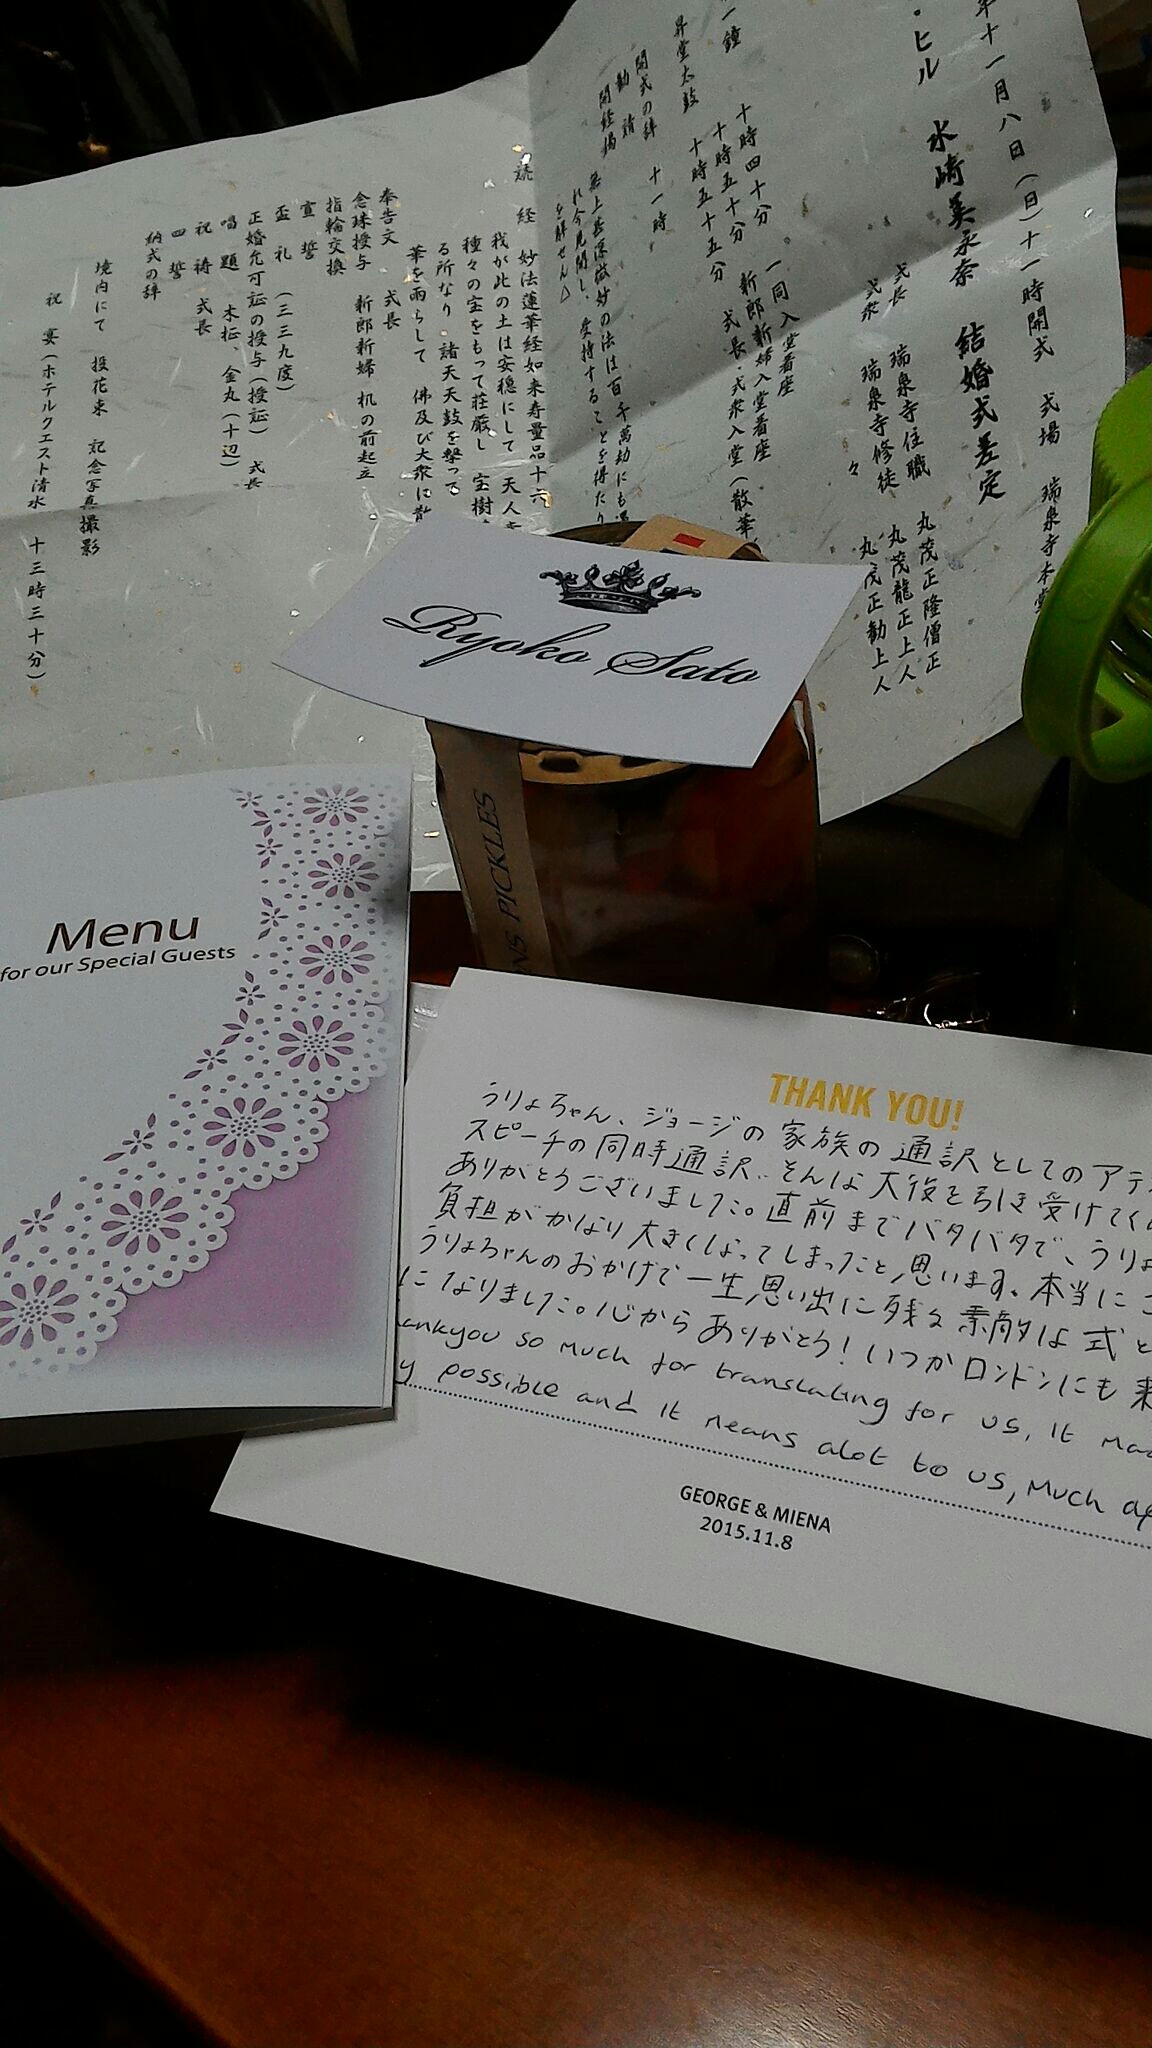 年十一月八日(日)十一時開式 式場 瑞泉寺本堂
・ヒル 水崎美永奈 結婚式差定
式長 瑞泉寺住職 丸茂正隆僧正
式衆 瑞泉寺修徒 丸茂龍正上人
々 丸茂正勧上人
一同入堂着座
一鐘 十時四十分 新郎新婦入堂着座
十時五十分 式長・式衆入堂(散華
昇堂太鼓 十時五十五分
開式の辞 十一時
勧請
開経偈 無上甚深微妙の法は百千萬劫にも
れ今見聞し、受持することを得たり
を解せん
読経 妙法蓮華経如来寿量品十六
我が此の土は安穏にして 天人
種々の宝をもって荘厳し 宝樹
る所なり 諸天天鼓を撃って
華を雨らして 佛及び大衆に散
奉告文 式長
念珠授与 新郎新婦 机の前起立
指輪交換
宣誓
盃礼 (三三九度)
正婚允可証の授与(授証) 式長
唱題 木柾、金丸(十辺)
祝祷 式長
四誓
納式の辞
境内にて 投花束 記念写真撮影
祝宴(ホテルクエスト清水 十三時三十分)
Ryoko Sato
NS PICKLES
Menu
for our Special Guests
THANK YOU!
うりょちゃん、ジョージの家族の通訳としてのアテ
スピーチの同時通訳…そんな大役を引き受けてく
ありがとうございました。直前までバタバタで、うりょ
負担がかなり大きくなってしまったと思います。本当に
うりょちゃんのおかげで一生思い出に残る素敵な式と
になりました。心からありがとう!いつかロンドンにも来
ankyou so much for translating for us, It mad
y possible and it means alot to us, Much ap
GEORGE & MIENA
2015.11.8